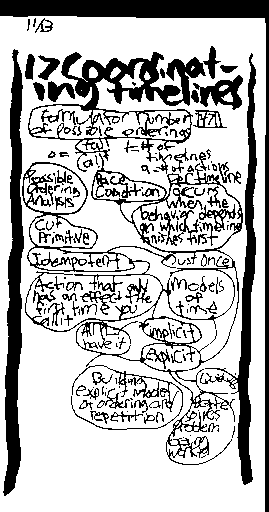 17 Coordinat-
ing timelines
Formula for number
of possible orderings
o =
(ta)!
t = # of
timelines
a = # of actions
per timeline
Possible
Ordering
Analysis
Race
Condition
occurs
when the
behavior depends
on which timeline
finishes first
Cut
Primitive
Idempotent
Just Once
Action that only
has an effect the
first time you
call it
Models
of
time
implicit
have it
Explicit
Building
explicit model
of ordering and
repetition
problem
being
worked